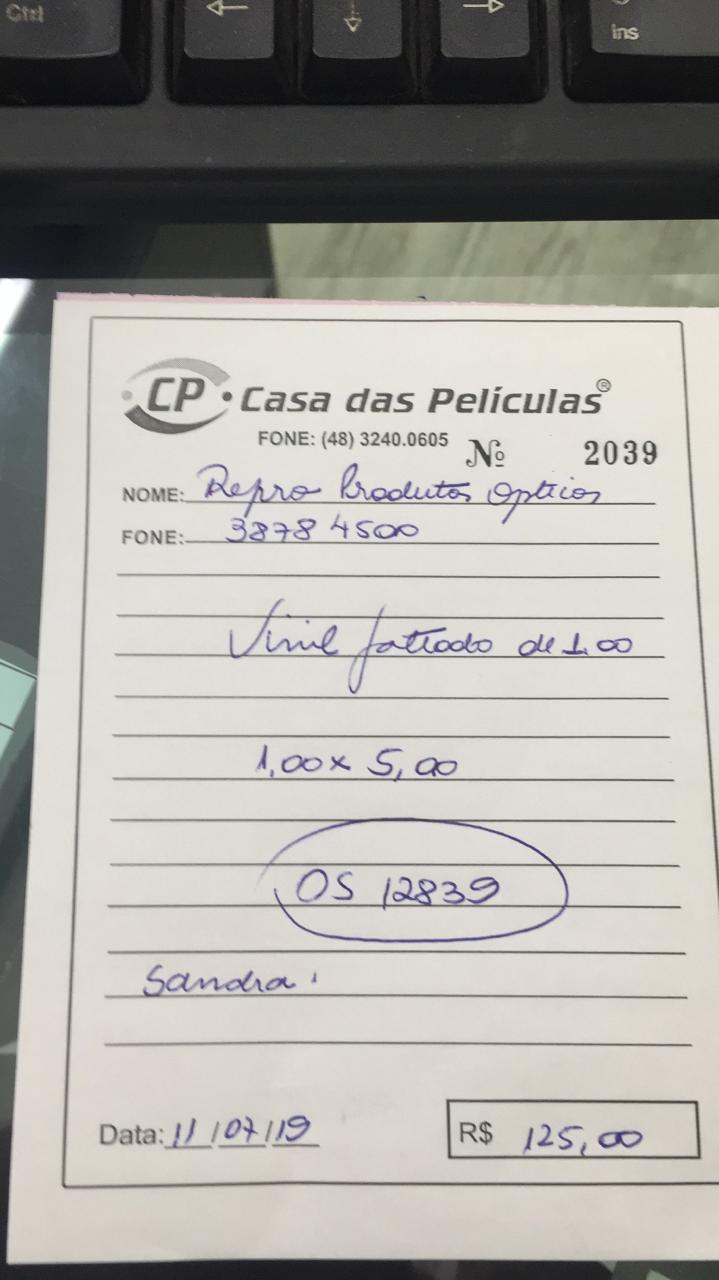 Ctrl
Ins
CP Casa das Películas®
FONE: (48) 3240.0605 Nº 2039
NOME: Repro Produtos Opticos
FONE: 3878 4500
Vinil jateado de 1.00
1,00 x 5,00
OS 12839
Sandra.
Data: 11/07/19 R$ 125,00